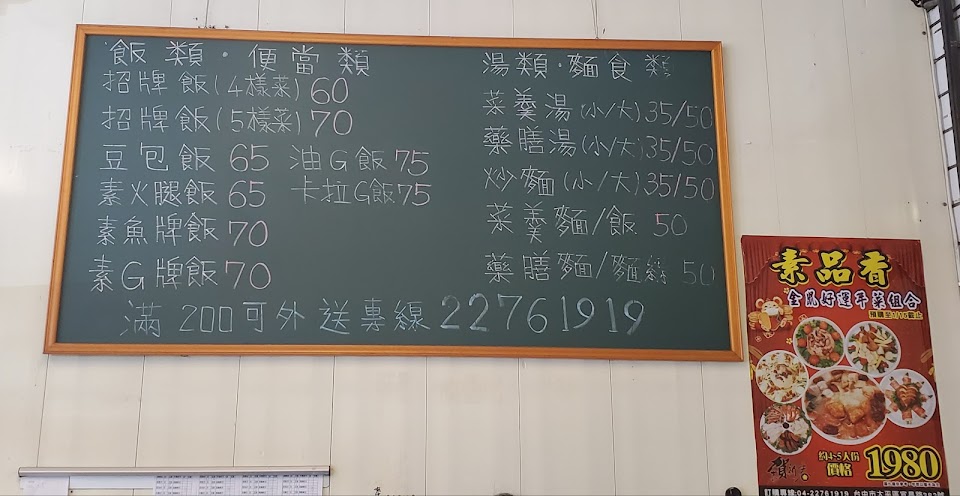 飯類·便當類
招牌飯(4樣菜)60
招牌飯(5樣菜)70
豆包飯 65 油G飯 75
素火腿飯 65 卡拉G飯 75
素魚牌飯 70
素G牌飯 70
湯類·麵食類
菜羹湯(小/大)35/50
藥膳湯(小/大)35/50
炒麵(小/大)35/50
菜羹麵/飯 50
藥膳麵/麵線 50
滿200可外送專線22761919
素品香
金鼠好運年菜組合
預購至1/15截止
約4~5人份
價格 1980
訂購專線:04-22761919